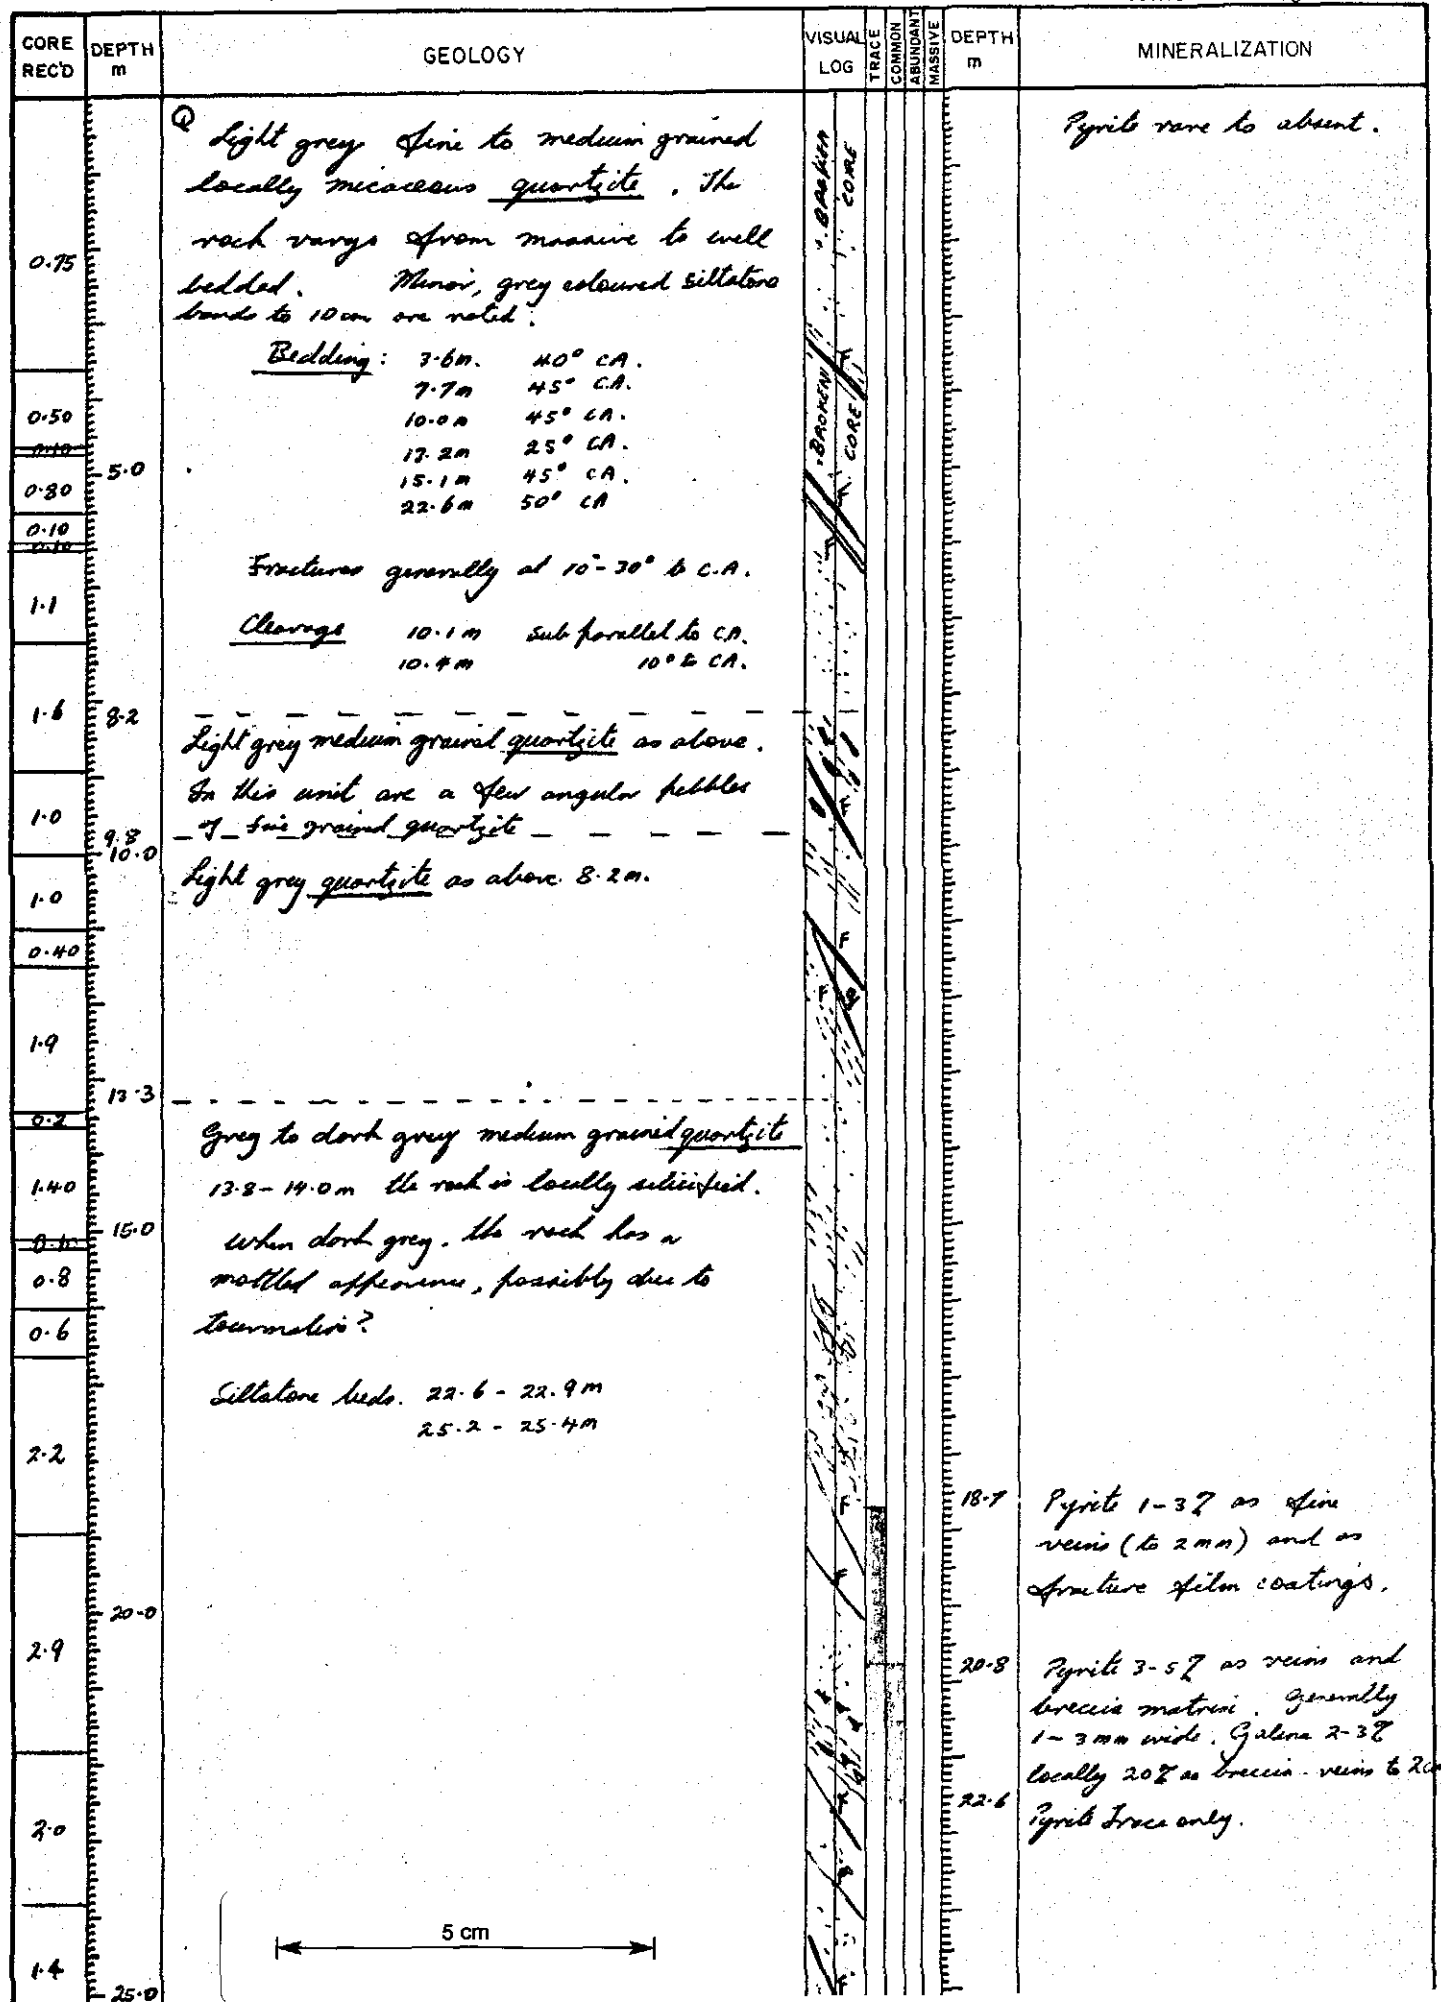 CORE REC'D
DEPTH m
GEOLOGY
VISUAL LOG
TRACE
COMMON
ABUNDANT
MASSIVE
DEPTH m
MINERALIZATION
Q
Light grey fine to medium grained
locally micaceous quartzite. The
rock varys from massive to well
bedded. Minor, grey coloured siltstone
bands to 10cm are noted.
Bedding: 3.6m. 40° CA.
7.7m 45° CA.
10.0m 45° CA.
13.2m 25° CA.
15.1m 45° CA.
22.6m 50° CA
Fractures generally at 10°-30° to C.A.
Cleavage 10.1m sub parallel to CA.
10.4m 10° to CA.
8.2
Light grey medium grained quartzite as above.
In this unit are a few angular pebbles
of fine grained quartzite
9.8
10.0
Light grey quartzite as above 8.2m.
13.3
Grey to dark grey medium grained quartzite
13.8-14.0m the rock is locally silicified.
when dark grey, the rock has a
mottled appearance, possibly due to
tourmaline?
Siltstone beds. 22.6 - 22.9m
25.2 - 25.4m
5 cm
0.75
0.50
0.10
0.80
0.10
0.10
1.1
1.6
1.0
1.0
0.40
1.9
0.2
1.40
0.8
0.6
2.2
2.9
2.0
1.4
5.0
15.0
20.0
25.0
BROKEN CORE
F
BROKEN CORE
F
F
F
F
F
F
F
F
Pyrite rare to absent.
18.7 Pyrite 1-3% as fine
veins (to 2mm) and as
fracture film coatings.
20.8 Pyrite 3-5% as veins and
breccia matrix. Generally
1-3mm wide. Galena 2-3%
locally 20% as breccia veins to 2cm
22.6 Pyrite Trace only.